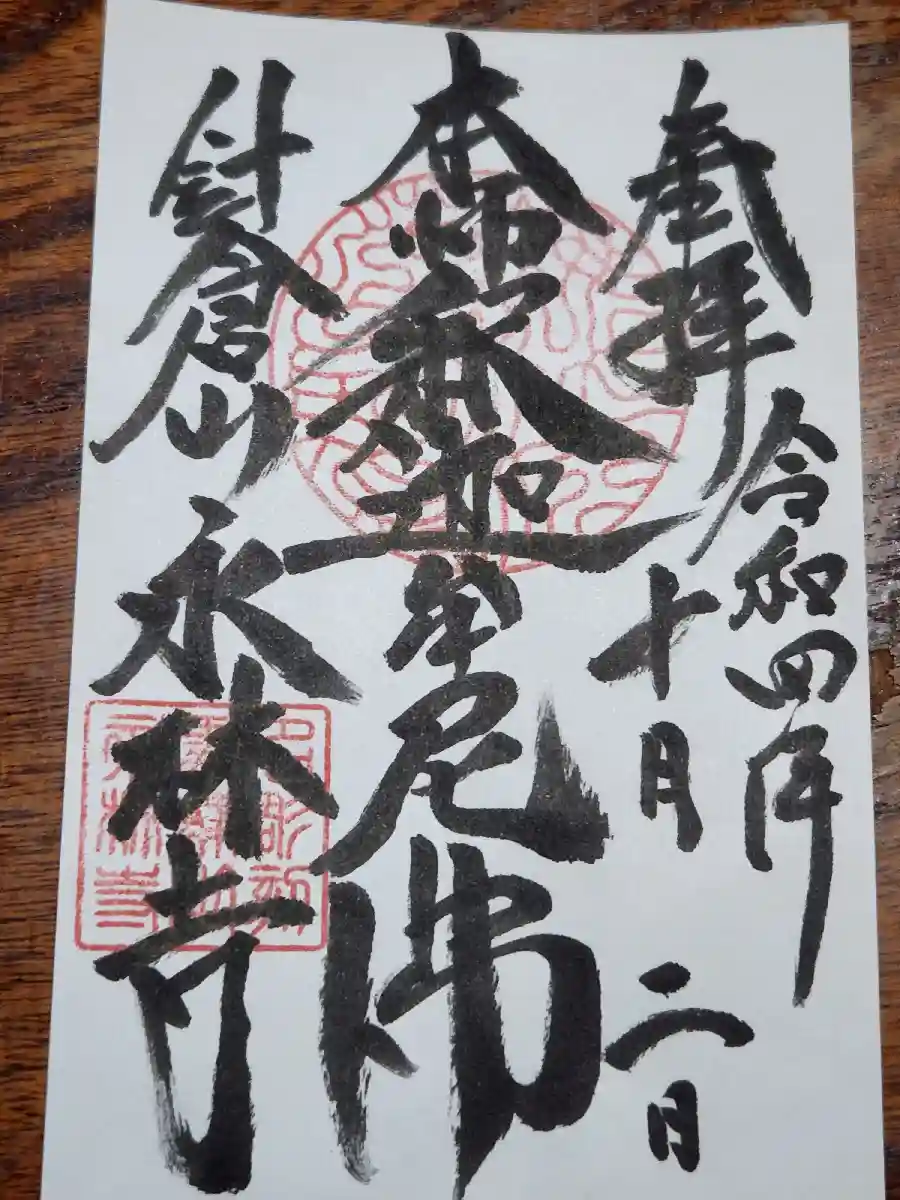 奉拝
令和四年
十月二日
本師釋迦牟尼佛
針倉山永林寺